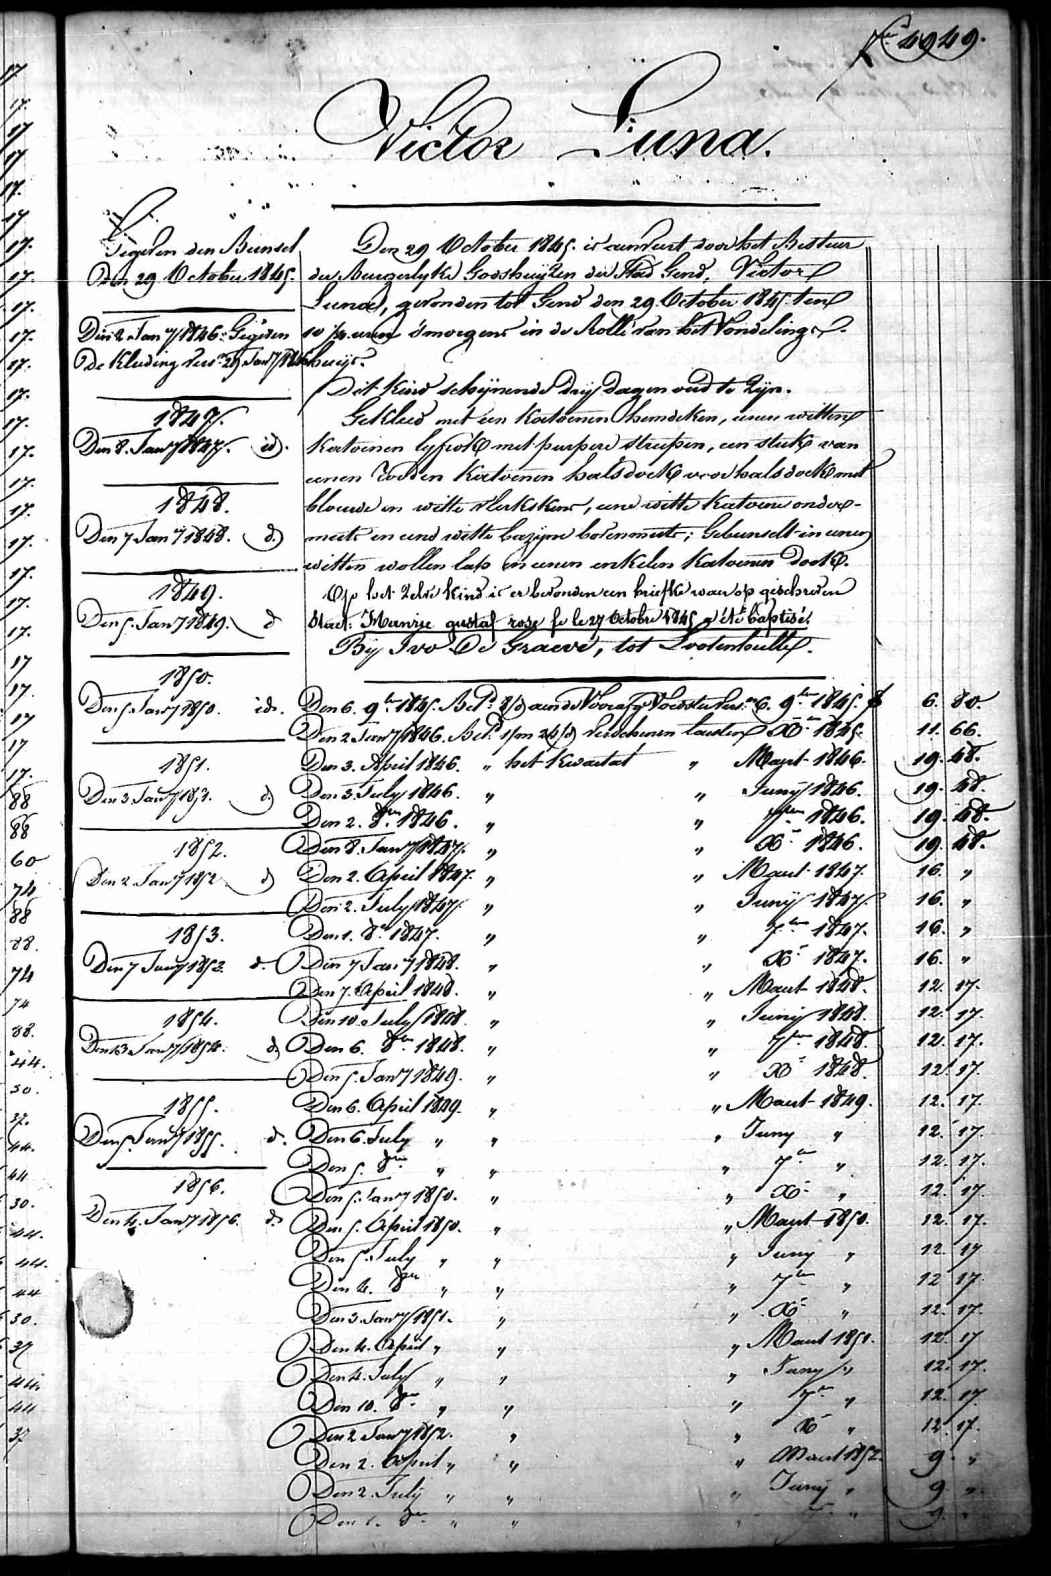 4949.
Victor Luna.
Gegeven den Bunsel
Den 29 October 1845.
Den 2 Jan^y 1846. Gegeven
de Kleeding vers^n 29 Jan^y 1846
1847.
Den 8. Jan^y 1847. id.
1848.
Den 7 Jan^y 1848. d.
1849.
Den 5. Jan^y 1849. d
1850.
Den 5. Jan^y 1850. id.
1851.
Den 3 Jan^y 1851. d
1852.
Den 2 Jan^y 1852 d
1853.
Den 7 Jan^y 1853. d.
1854.
Den 3 Jan^y 1854. d
1855.
Den 5. Jan^y 1855. d.
1856.
Den 4. Jan^y 1856. d.
Den 29 October 1845. is aenveert door het Bestuer
der Burgerlyke Godshuyzen der Stad Gend, Victor
Luna, gevonden tot Gend den 29 October 1845. ten
10 ½ uren smorgens in de Rolle van het Vondelings-
huys.
Dit Kind schynende dry dagen oud te zyn.
Gekleed met een Katoenen hemdeken, eenen witten
Katoenen lyfrok met purpere streepen, een stuk van
eenen rooden Katoenen halsdoek voor halsdoek met
blauwe en witte vlekskens, eene witte Katoene onder-
muts en eene witte bazyne bovenmuts; Gebunselt in eenen
witten wollen lap en eenen enkelen Katoenen doek.
Op het zelve kind is er bevonden een briefke waer op geschreven
staet: gustaf rose le 27 Octobre 1845 été baptisé.
By Ivo De Graeve, tot Lootenhulle.
Den 6. 9^bre 1845. Bet^d 9^bre 1845. 6. 80.
Den 2 Jan^y 1846. Bet^d verschenen X^bre 1845. 11. 66.
Den 3. April 1846. " het Kwartal " Maert 1846. 19. 48.
Den 3. July 1846. " " Juny 1846. 19. 48.
Den 2. 8^bre 1846. " " 7^bre 1846. 19. 48.
Den 8. Jan^y 1847. " " X^bre 1846. 19. 48.
Den 2. April 1847. " " Maert 1847. 16. "
Den 2. July 1847. " " Juny 1847. 16. "
Den 1. 8^bre 1847. " " 7^bre 1847. 16. "
Den 7 Jan^y 1848. " " X^bre 1847. 16. "
Den 7. April 1848. " " Maert 1848. 12. 17.
Den 10. July 1848. " " Juny 1848. 12. 17.
Den 6. 8^bre 1848. " " 7^bre 1848. 12. 17.
Den 5. Jan^y 1849. " " X^bre 1848. 12. 17.
Den 6. April 1849. " " Maert 1849. 12. 17.
Den 6. July " " " Juny " 12. 17.
Den 5. 8^bre " " " 7^bre " 12. 17.
Den 5. Jan^y 1850. " " X^bre " 12. 17.
Den 5. April 1850. " " Maert 1850. 12. 17.
Den 5. July " " " Juny " 12. 17
Den 4. 8^bre " " " 7^bre " 12 17.
Den 3. Jan^y 1851. " " X^bre " 12. 17.
Den 4. April " " " Maert 1851. 12. 17
Den 4. July " " " Juny " 12. 17.
Den 10. 8^bre " " " 7^bre " 12. 17
Den 2 Jan^y 1852. " " X^bre " 12. 17.
Den 2. April " " " Maert 1852. 9. "
Den 2. July " " " Juny " 9. "
Den 1. 8^bre " " " 7^bre " 9. "